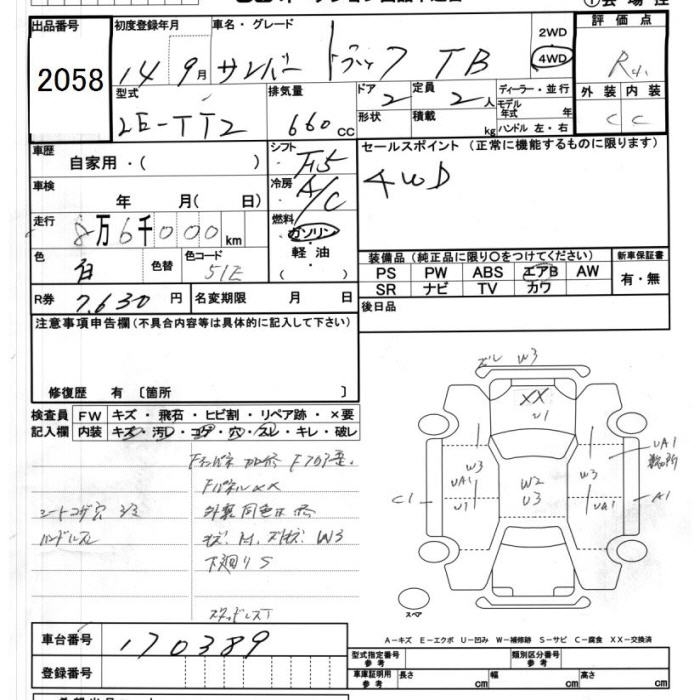 出品番号 初度登録年月 車名・グレード 2WD 評価点
2058 14 9月 サンバー トラック TB 4WD R4
型式 排気量 ドア 定員 ディーラー・並行 外装 内装
LE-TT2 660CC 2 2人 モデル年式 年 C C
形状 積載 kg ハンドル 左・右
車歴 シフト セールスポイント (正常に機能するものに限ります)
自家用・( ) F5 4WD
車検 冷房
年 月( 日) A/C
走行 8万6千000km 燃料
ガソリン
軽油
( )
色 色替 色コード 装備品(純正品に限り○をつけてください) 新車保証書
白 51E PS PW ABS エアB AW 有・無
SR ナビ TV カワ
R券 7,630円 名変期限 月 日 後日品
注意事項申告欄(不具合内容等は具体的に記入して下さい)
修復歴 有 〔箇所 〕
検査員 FW キズ・飛石・ヒビ割・リペア跡・×要
記入欄 内装 キズ・汚レ・コゲ・穴・スレ・キレ・破レ
シートコゲ穴
ハンドルスレ
FパネルXX
下廻りS
スタッドレス
ズレ W3
XX
U1
W3 UA1 U1
W2
U3
W3 UA1
UA1
C1 A1
スペア
A-キズ E-エクボ U-凹み W-補修跡 S-サビ C-腐食 XX-交換済
車台番号 170389
登録番号
型式指定番号 参考 類別区分番号 参考
車庫証明用 参考 長さ cm 幅 cm 高さ cm